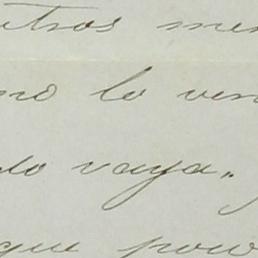 tros me
no lo ven
do vaya„
que pou